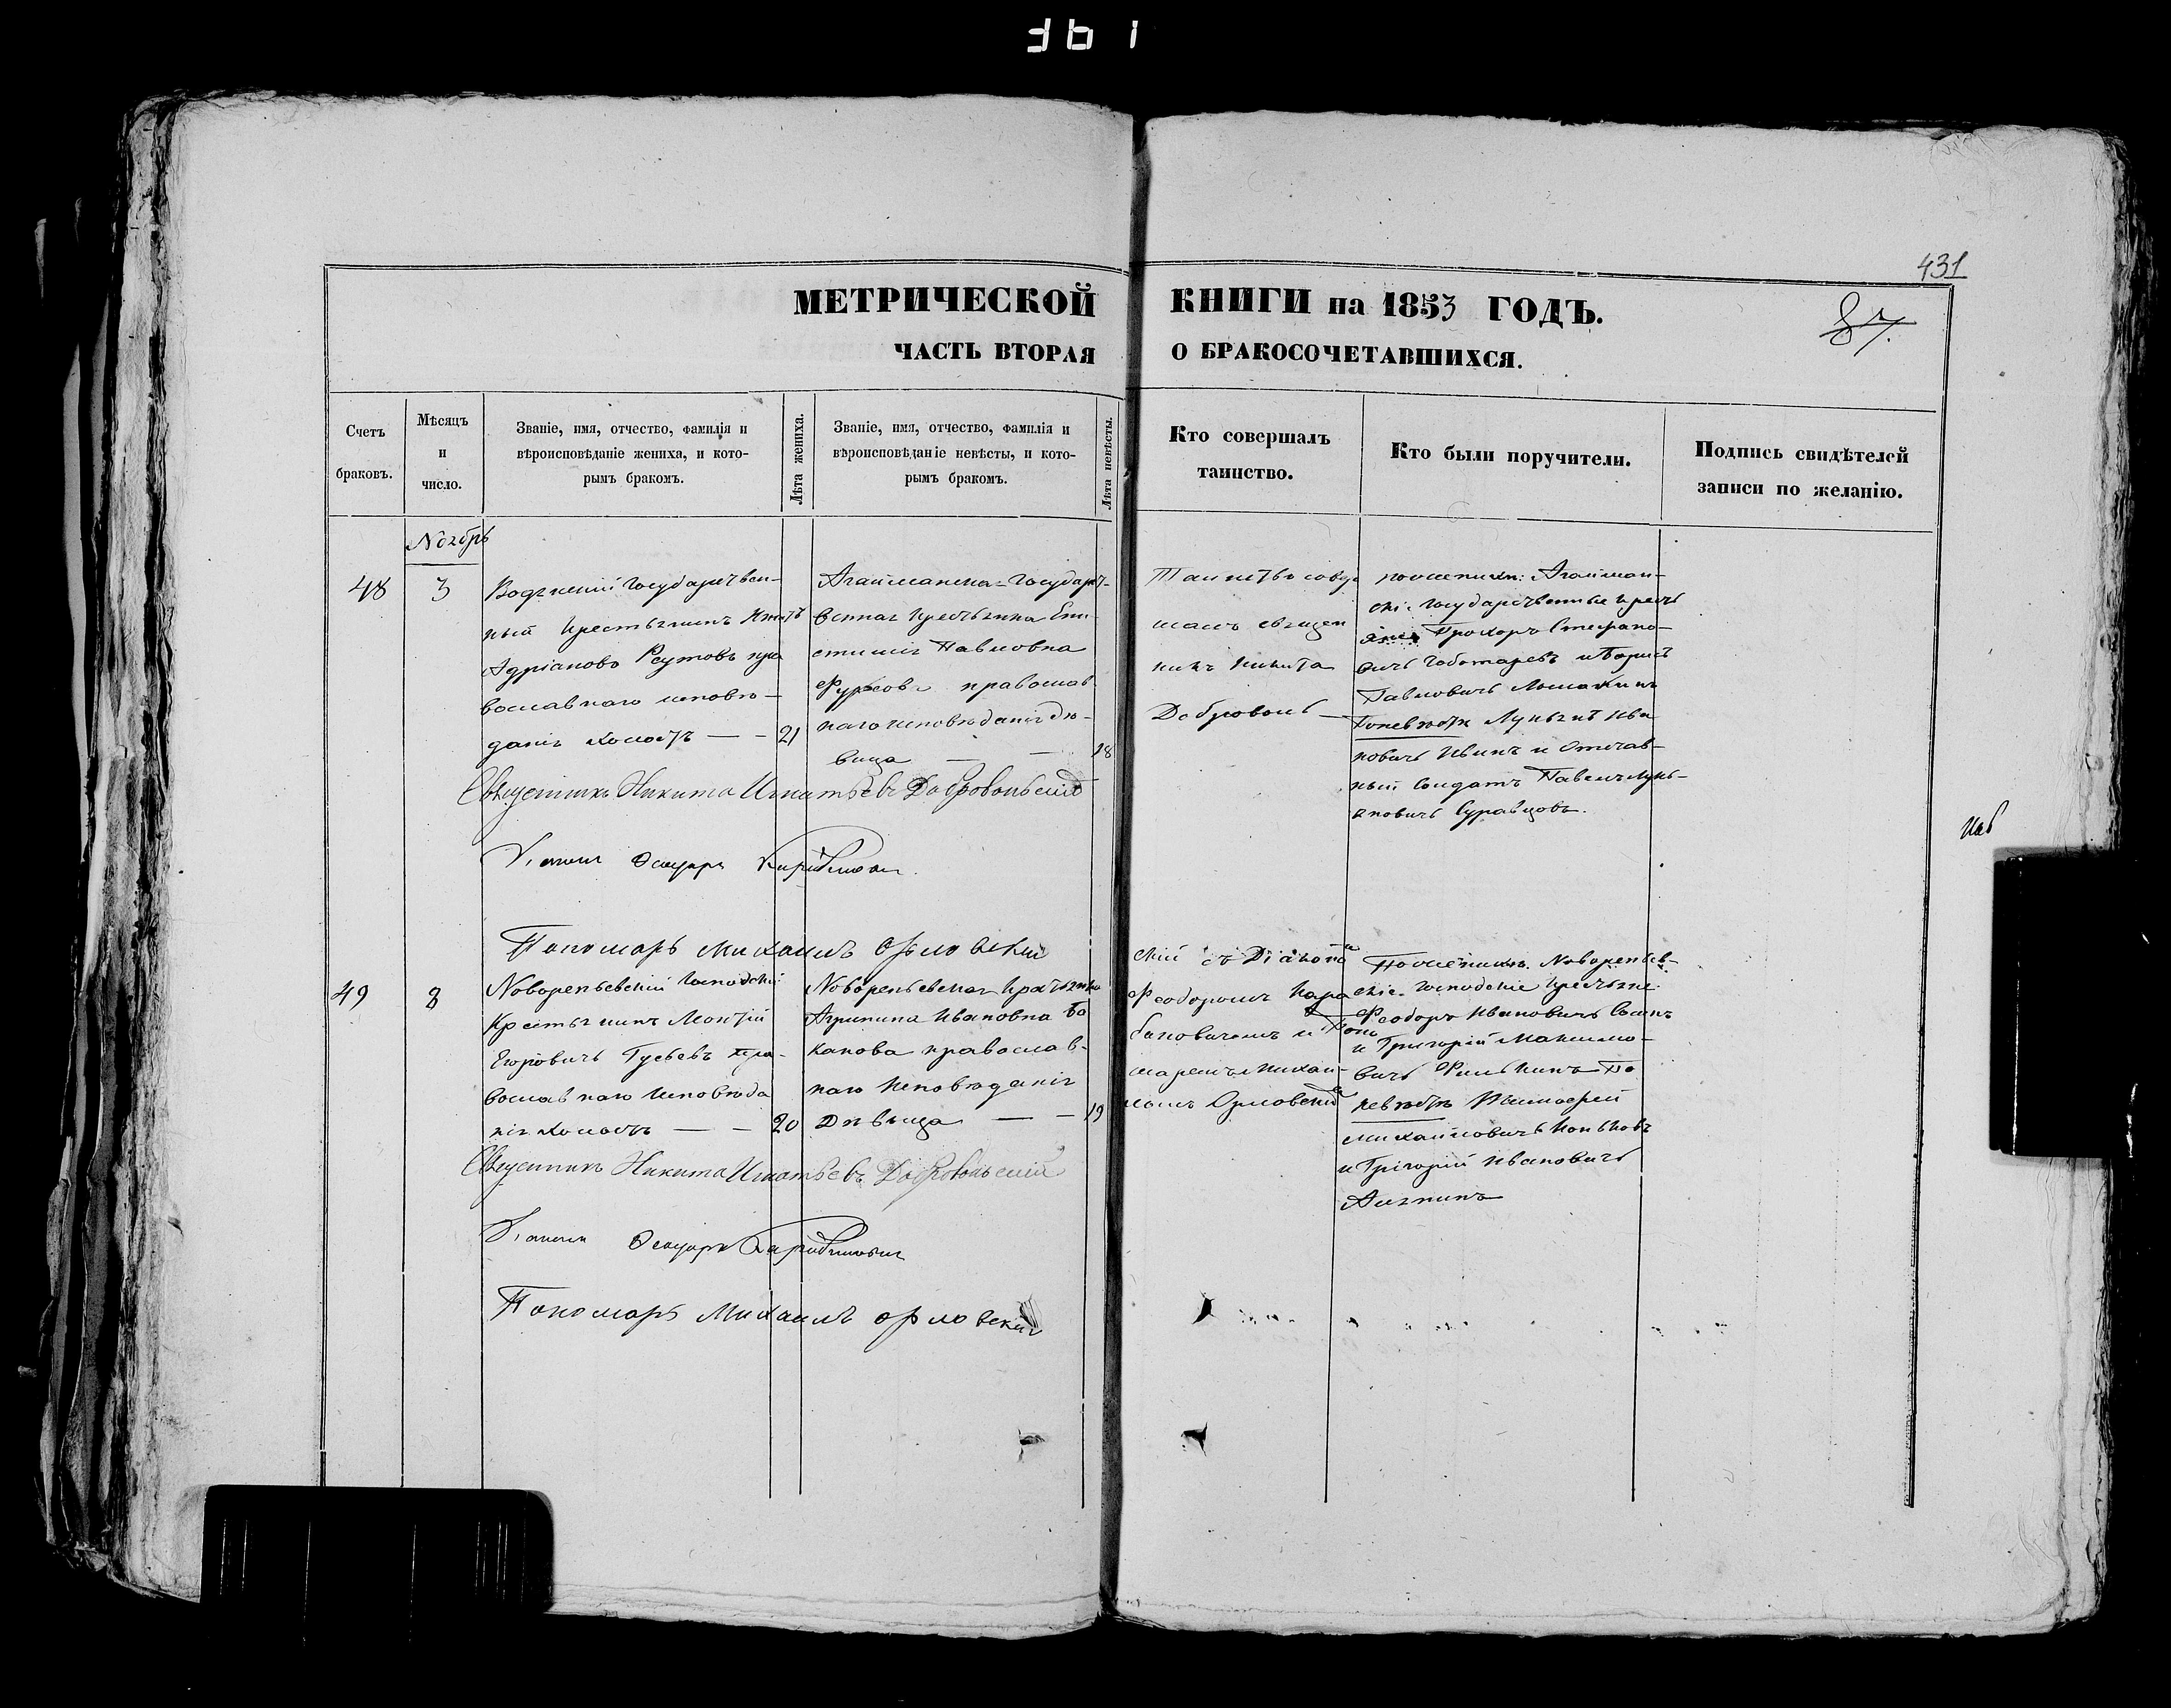 431
МЕТРИЧЕСКОЙ КНИГИ на 1853 ГОДЪ.
87.
ЧАСТЬ ВТОРАЯ О БРАКОСОЧЕТАВШИХСЯ.
Счетъ браковъ.
Мѣсяцъ и число.
Званіе, имя, отчество, фамилія и
вѣроисповѣданіе жениха, и кото-
рымъ бракомъ.
Лѣта жениха.
Званіе, имя, отчество, фамилія и
вѣроисповѣданіе невѣсты, и кото-
рымъ бракомъ.
Лѣта невѣсты.
Кто совершалъ
таинство.
Кто были поручители.
Подпись свидѣтелей
записи по желанію.
Ноябрь
48
3
Государствен-
ный крестьянинъ
Адріановъ Реутовъ пра
вославнаго исповѣ-
данія холостъ — — 21
Агайманска Государст-
венная крестьянка
Павловна
православ
наго исповѣданія дѣ-
вица — 18
Таинство совер
шалъ священ
никъ Никита
Доброволь
по женихѣ: Агайман-
скіе Государственные кресть
яне Прохоръ Стефано-
вичъ Чоботаревъ и Борисъ
Павловичъ
По невѣстѣ Лукьянъ Ива
новичъ Ивинъ и Отстав-
ный Солдатъ Павелъ Лукь-
яновичъ Суравцовъ.
Священникъ Никита Игнатьевъ Добровольскій
Пономарь Михаилъ Орловскій
49
8
Новорепьевскій Господскій
Крестьянинъ Леонтій
Егоровичъ Гусевъ пра-
вославнаго исповѣда
нія холостъ — — 20
Новорепьевская крестьянка
Агрипина Ивановна Бо
канова православ-
наго исповѣданія
Дѣвица — — 19
скій съ Діакона
Феодоромъ Кара
бановичемъ и Поно
маремъ Михаи-
ломъ Орловски
По женихѣ. Новорепьев-
скіе Господскіе крестьяне
Феодоръ Ивановичъ
и Григорій Максимо-
вичъ Филькинъ По
невѣстѣ Тимофей
Михайловичъ Коньковъ
и Григорій Ивановичъ
Аляпинъ
Священникъ Никита Игнатьевъ Добровольскій
Пономарь Михаилъ Орловскій